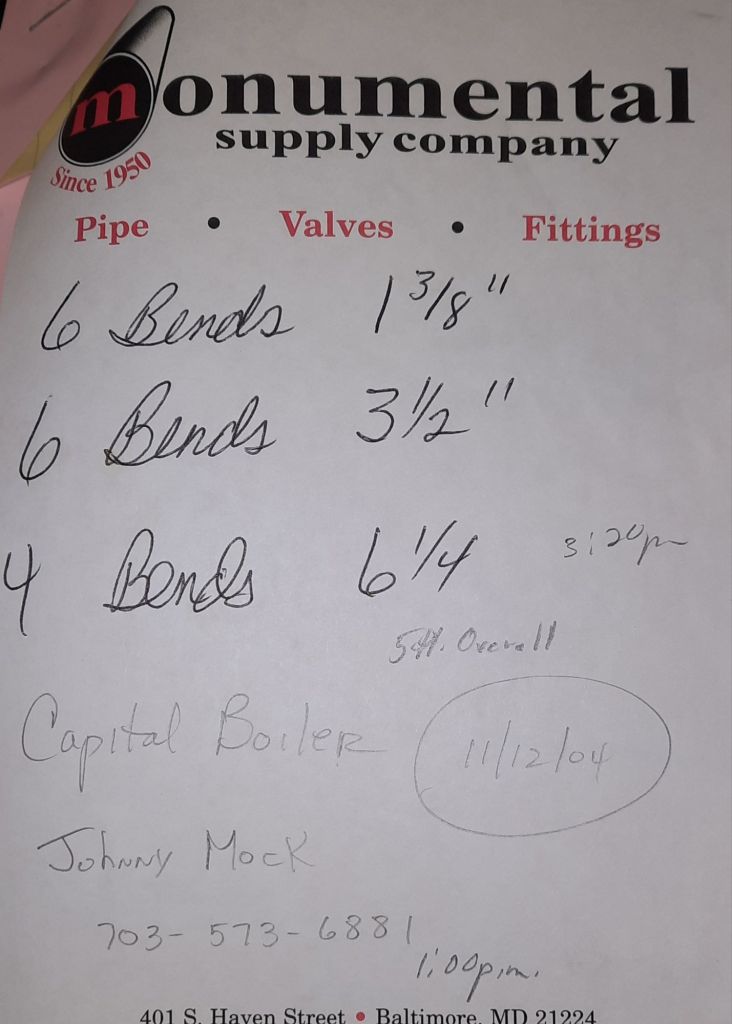 monumental
supply company
Since 1950
Pipe • Valves • Fittings
6 Bends 1 3/8"
6 Bends 3 1/2"
4 Bends 6 1/4
3:20pm
5ft. Overall
Capital Boiler
11/12/04
Johnny Mock
703-573-6881
1:00p.m.
401 S. Haven Street • Baltimore, MD 21224